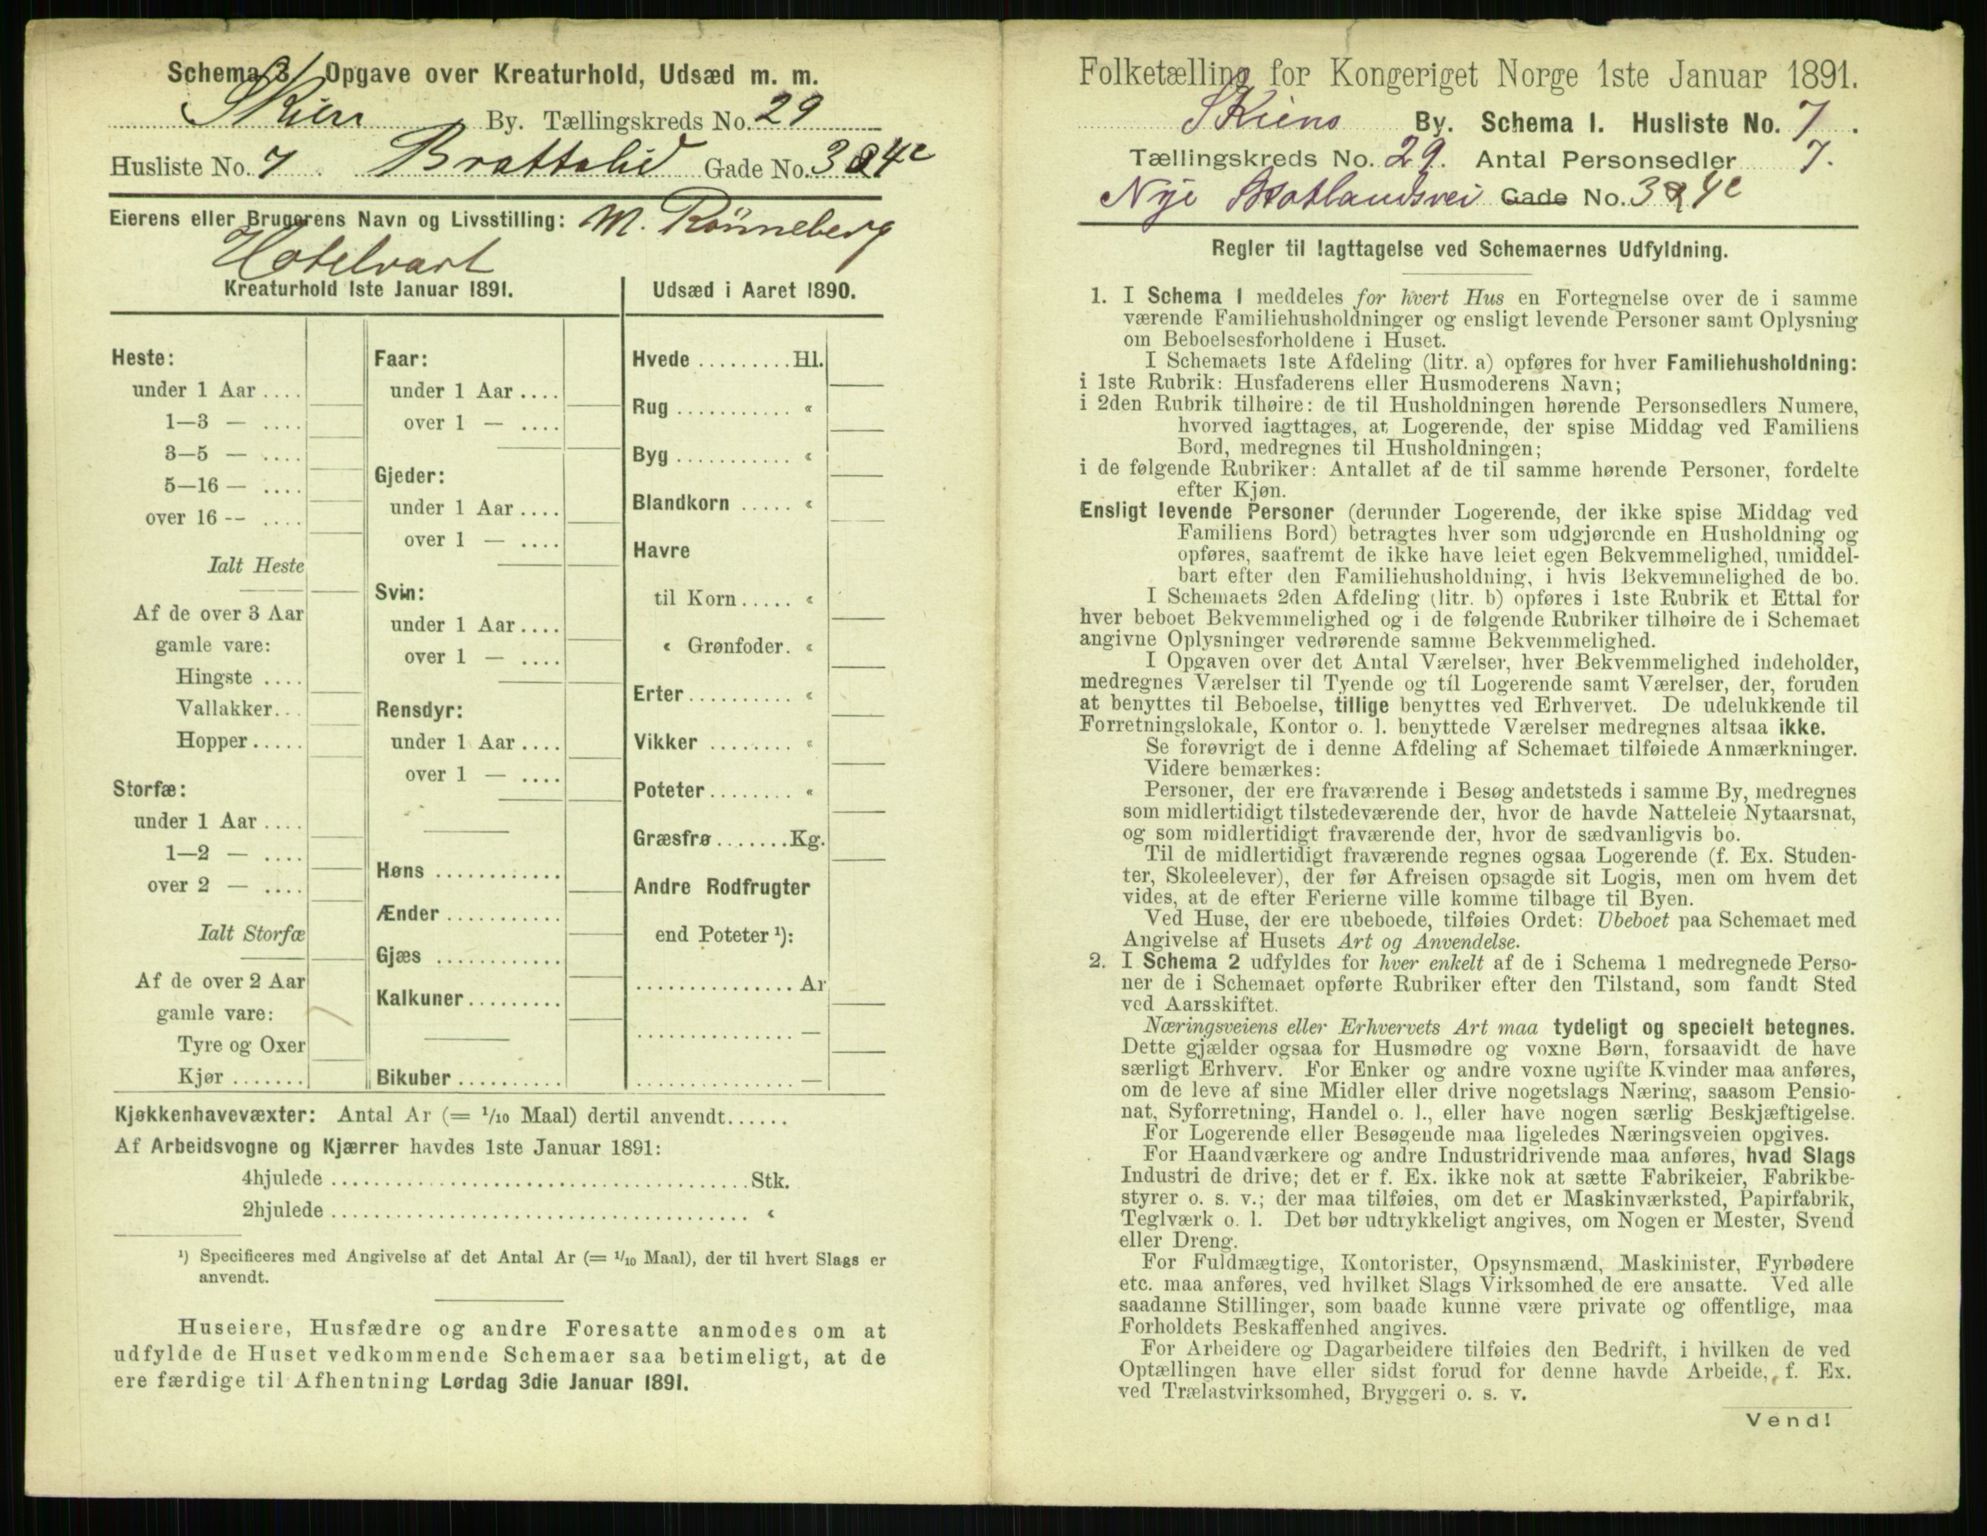 Schema 3. Opgave over Kreaturhold, Udsæd m. m.
Skien By. Tællingskreds No. 29
Husliste No. 7. Brattalid Gade No. 34c
Eierens eller Brugerens Navn og Livsstilling: M. Rönneberg
Hotelvært
Kreaturhold 1ste Januar 1891.
Heste:
under 1 Aar ....
1—3 — ....
3—5 — ....
5—16 — ....
over 16 -- ....
Ialt Heste
Af de over 3 Aar
gamle vare:
Hingste ....
Vallakker...
Hopper.....
Storfæ:
under 1 Aar ....
1—2 — ....
over 2 — ....
Ialt Storfæ
Af de over 2 Aar
gamle vare:
Tyre og Oxer
Kjør .......
Faar:
under 1 Aar ....
over 1 — ....
Gjeder:
under 1 Aar ....
over 1 — ....
Svin:
under 1 Aar ....
over 1 — ....
Rensdyr:
under 1 Aar ....
over 1 — ....
Høns ............
Ænder ...........
Gjæs ............
Kalkuner.........
Bikuber ..........
Udsæd i Aaret 1890.
Hvede .........Hl.
Rug ........... «
Byg ........... «
Blandkorn ..... «
Havre
til Korn..... «
« Grønfoder. «
Erter.......... «
Vikker ........ «
Poteter........ «
Græsfrø .......Kg.
Andre Rodfrugter
end Poteter ¹):
............... Ar
............... —
............... —
Kjøkkenhavevæxter: Antal Ar (= 1/10 Maal) dertil anvendt......
Af Arbeidsvogne og Kjærrer havdes 1ste Januar 1891:
4hjulede ........................................ Stk.
2hjulede ........................................ «
¹) Specificeres med Angivelse af det Antal Ar (= 1/10 Maal), der til hvert Slags er
anvendt.
Huseiere, Husfædre og andre Foresatte anmodes om at
udfylde de Huset vedkommende Schemaer saa betimeligt, at de
ere færdige til Afhentning Lørdag 3die Januar 1891.
Folketælling for Kongeriget Norge 1ste Januar 1891.
Skiens By. Schema 1. Husliste No. 7.
Tællingskreds No. 29. Antal Personsedler 7.
Nye Gade No. 34c
Regler til Iagttagelse ved Schemaernes Udfyldning.
1. I Schema 1 meddeles for hvert Hus en Fortegnelse over de i samme
værende Familiehusholdninger og ensligt levende Personer samt Oplysning
om Beboelsesforholdene i Huset.
I Schemaets 1ste Afdeling (litr. a) opføres for hver Familiehusholdning:
i 1ste Rubrik: Husfaderens eller Husmoderens Navn;
i 2den Rubrik tilhøire: de til Husholdningen hørende Personsedlers Numere,
hvorved iagttages, at Logerende, der spise Middag ved Familiens
Bord, medregnes til Husholdningen;
i de følgende Rubriker: Antallet af de til samme hørende Personer, fordelte
efter Kjøn.
Ensligt levende Personer (derunder Logerende, der ikke spise Middag ved
Familiens Bord) betragtes hver som udgjørende en Husholdning og
opføres, saafremt de ikke have leiet egen Bekvemmelighed, umiddel-
bart efter den Familiehusholdning, i hvis Bekvemmelighed de bo.
I Schemaets 2den Afdeling (litr. b) opføres i 1ste Rubrik et Ettal for
hver beboet Bekvemmelighed og i de følgende Rubriker tilhøire de i Schemaet
angivne Oplysninger vedrørende samme Bekvemmelighed.
I Opgaven over det Antal Værelser, hver Bekvemmelighed indeholder,
medregnes Værelser til Tyende og til Logerende samt Værelser, der, foruden
at benyttes til Beboelse, tillige benyttes ved Erhvervet. De udelukkende til
Forretningslokale, Kontor o. l. benyttede Værelser medregnes altsaa ikke.
Se forøvrigt de i denne Afdeling af Schemaet tilføiede Anmærkninger.
Videre bemærkes:
Personer, der ere fraværende i Besøg andetsteds i samme By, medregnes
som midlertidigt tilstedeværende der, hvor de havde Natteleie Nytaarsnat,
og som midlertidigt fraværende der, hvor de sædvanligvis bo.
Til de midlertidigt fraværende regnes ogsaa Logerende (f. Ex. Studen-
ter, Skoleelever), der før Afreisen opsagde sit Logis, men om hvem det
vides, at de efter Ferierne ville komme tilbage til Byen.
Ved Huse, der ere ubeboede, tilføies Ordet: Ubeboet paa Schemaet med
Angivelse af Husets Art og Anvendelse.
2. I Schema 2 udfyldes for hver enkelt af de i Schema 1 medregnede Perso-
ner de i Schemaet opførte Rubriker efter den Tilstand, som fandt Sted
ved Aarsskiftet.
Næringsveiens eller Erhvervets Art maa tydeligt og specielt betegnes.
Dette gjælder ogsaa for Husmødre og voxne Børn, forsaavidt de have
særligt Erhverv. For Enker og andre voxne ugifte Kvinder maa anføres,
om de leve af sine Midler eller drive nogetslags Næring, saasom Pensio-
nat, Syforretning, Handel o. l., eller have nogen særlig Beskjæftigelse.
For Logerende eller Besøgende maa ligeledes Næringsveien opgives.
For Haandværkere og andre Industridrivende maa anføres, hvad Slags
Industri de drive; det er f. Ex. ikke nok at sætte Fabrikeier, Fabrikbe-
styrer o. s. v.; der maa tilføies, om det er Maskinværksted, Papirfabrik,
Teglværk o. l. Det bør udtrykkeligt angives, om Nogen er Mester, Svend
eller Dreng.
For Fuldmægtige, Kontorister, Opsynsmænd, Maskinister, Fyrbødere
etc. maa anføres, ved hvilket Slags Virksomhed de ere ansatte. Ved alle
saadanne Stillinger, som baade kunne være private og offentlige, maa
Forholdets Beskaffenhed angives.
For Arbeidere og Dagarbeidere tilføies den Bedrift, i hvilken de ved
Optællingen have eller sidst forud for denne havde Arbeide, f. Ex.
ved Trælastvirksomhed, Bryggeri o. s. v.
Vend!